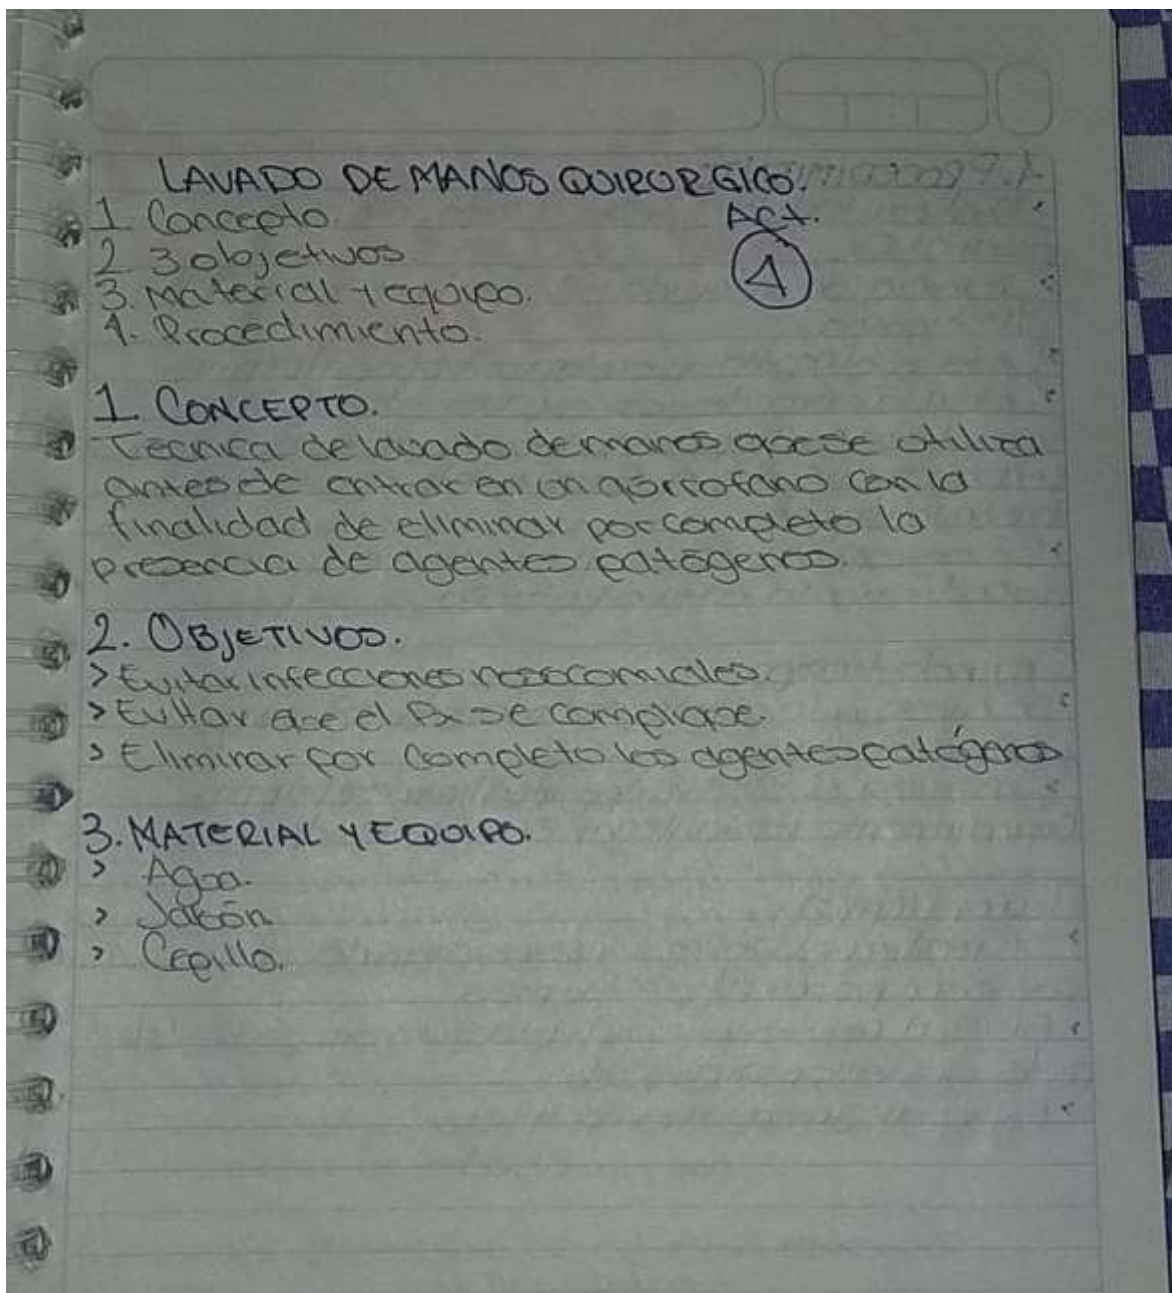 LAVADO DE MANOS QUIRURGICO.
1 Concepto. Act.
2 3 objetivos 4
3. Material y equipo.
4. Procedimiento.
1. CONCEPTO.
Técnica de lavado de manos que se utiliza
antes de entrar en un quirrofano con la
finalidad de eliminar por completo la
presencia de agentes patógenos.
2. OBJETIVOS.
> Evitar infecciones nosocomiales.
> Evitar que el Px se complique.
> Eliminar por completo los agentes patógenos
3. MATERIAL Y EQUIPO.
> Agua.
> Jabón
> Cepillo.